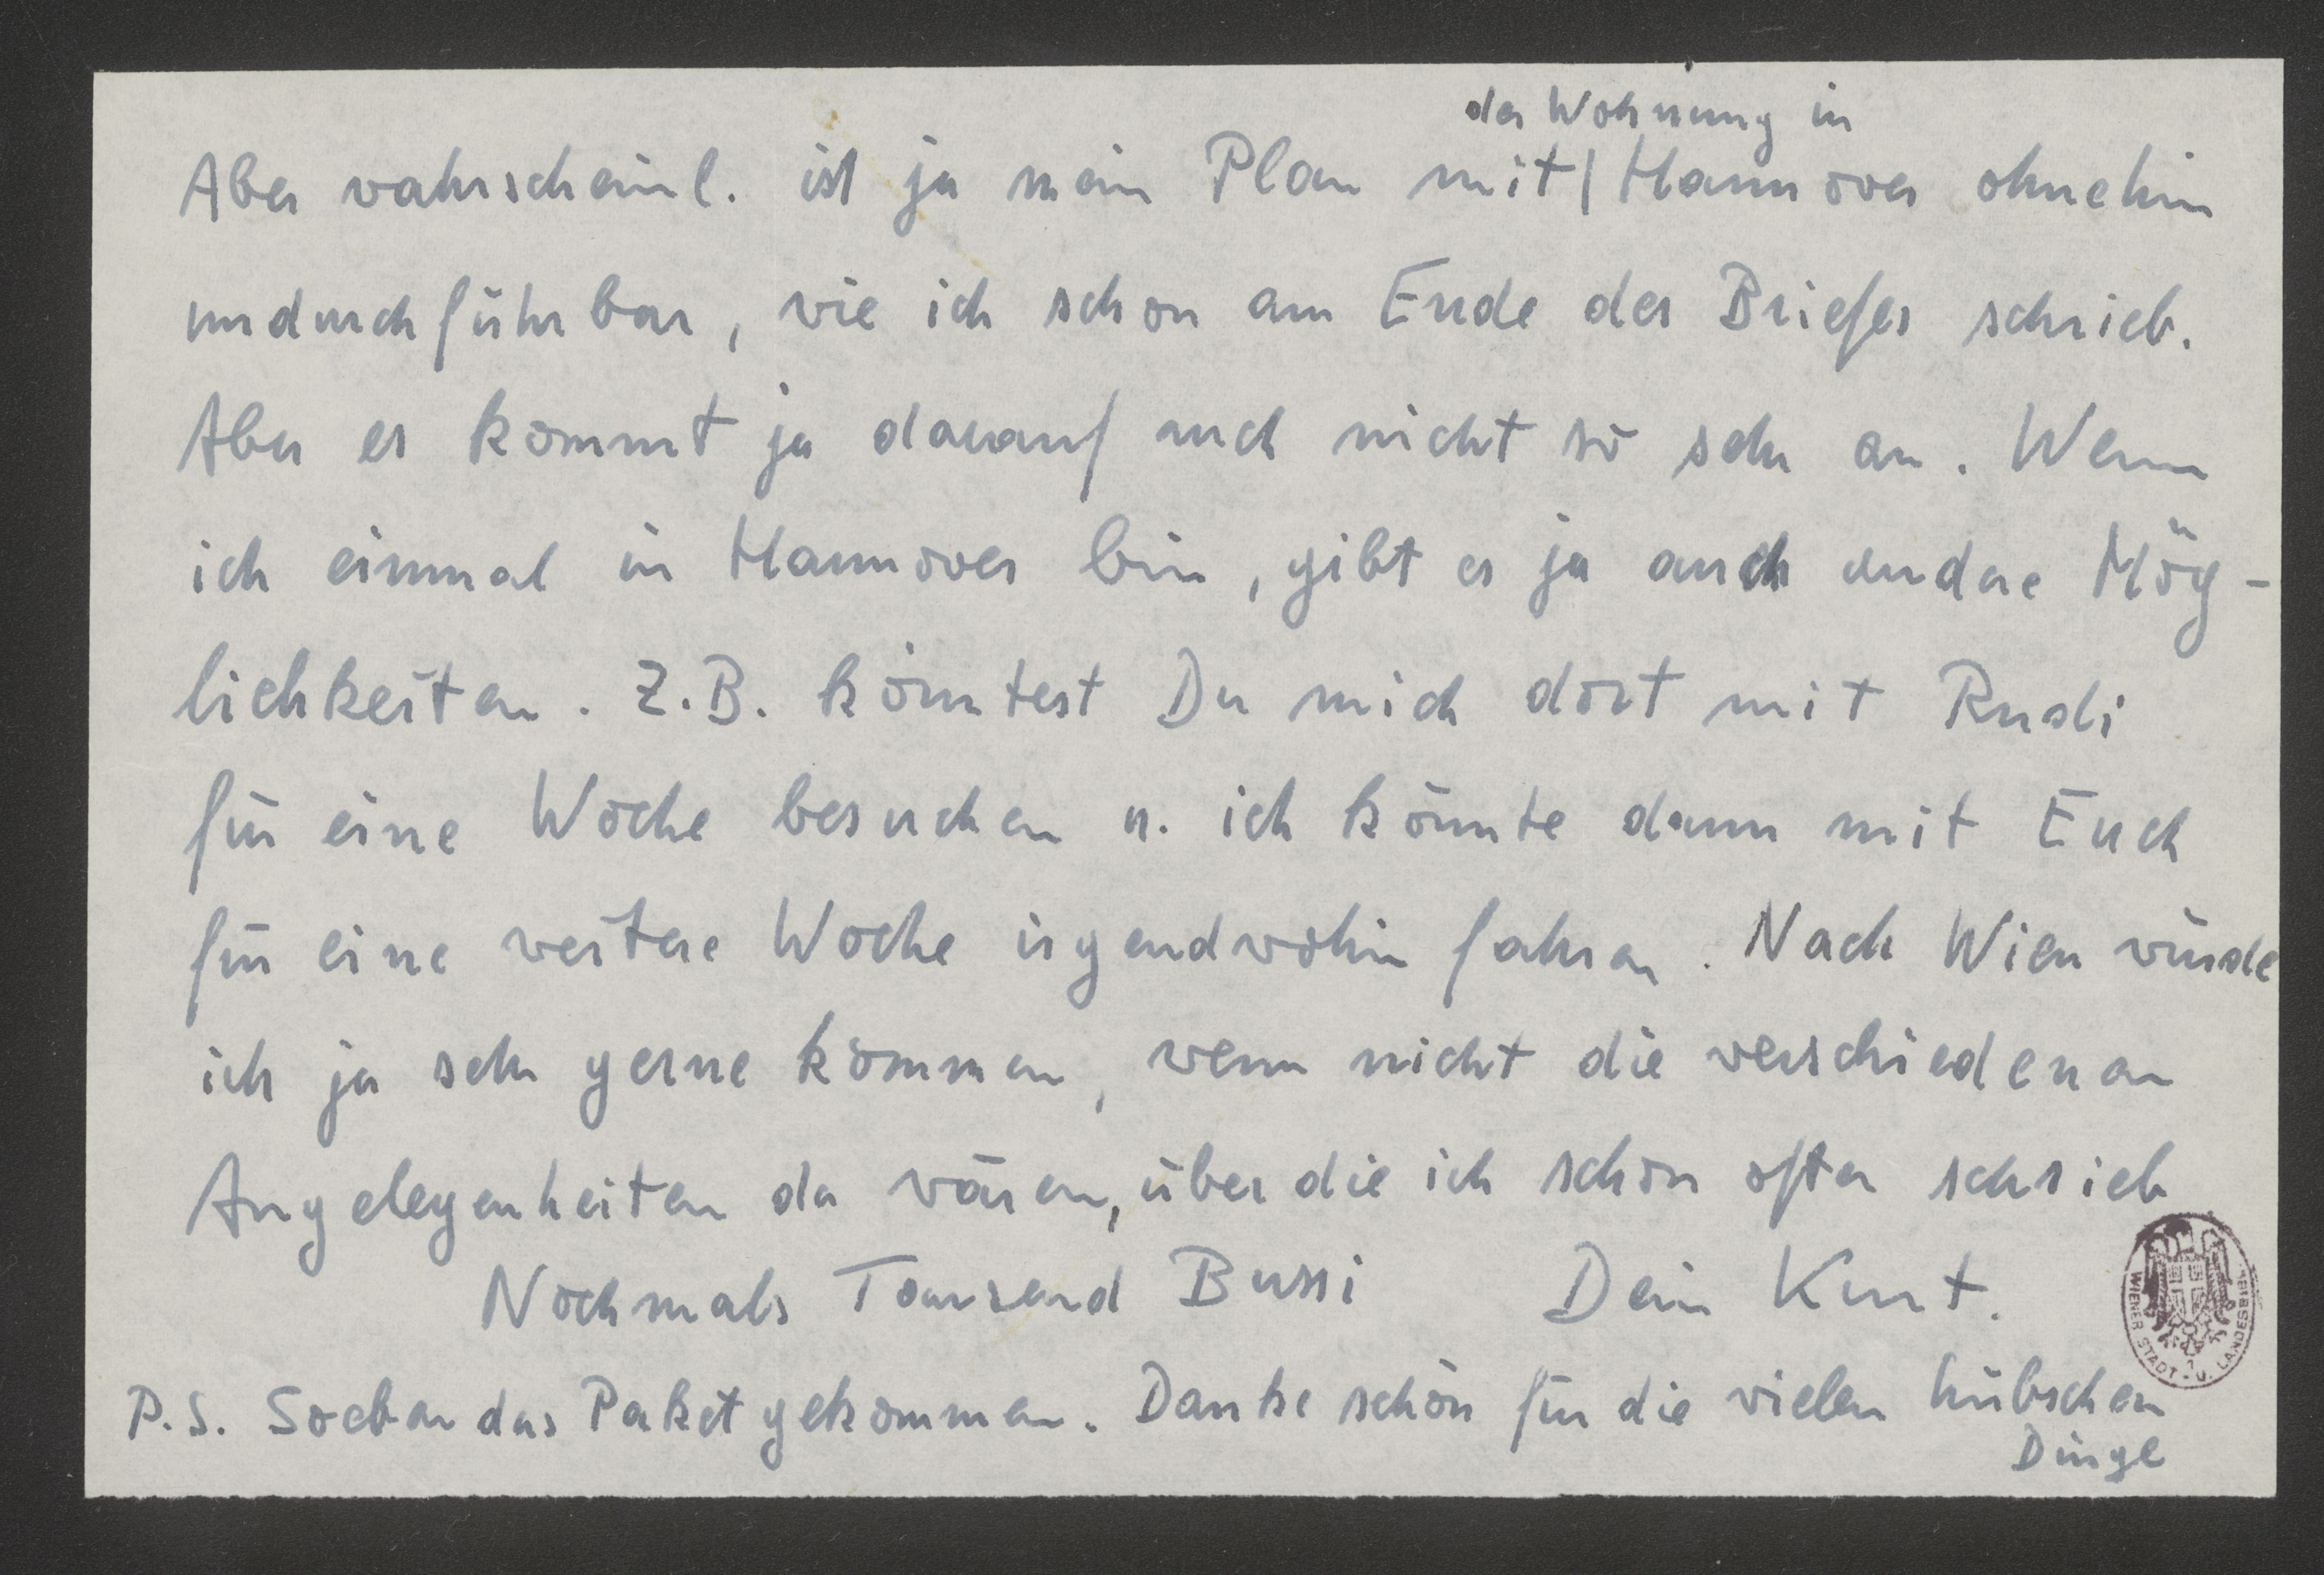 der Wohnung in
Aber wahrscheinl. ist ja mein Plan mit | Hannover ohnehin
undurchführbar, wie ich schon am Ende des Briefes schrieb.
Aber es kommt ja darauf auch nicht so sehr an. Wenn
ich einmal in Hannover bin, gibt es ja auch andere Mög-
lichkeiten. Z.B. könntest Du mich dort mit Rudi
für eine Woche besuchen u. ich könnte dann mit Euch
für eine weitere Woche irgendwohin fahren. Nach Wien würde
ich ja sehr gerne kommen, wenn nicht die verschiedenen
Angelegenheiten da wären, über die ich schon öfter schrieb
Nochmals Tausend Bussi Dein Kurt.
P.S. Soeben das Paket gekommen. Danke schön für die vielen hübschen
Dinge
WIENER STADT- U. LANDESBIBL